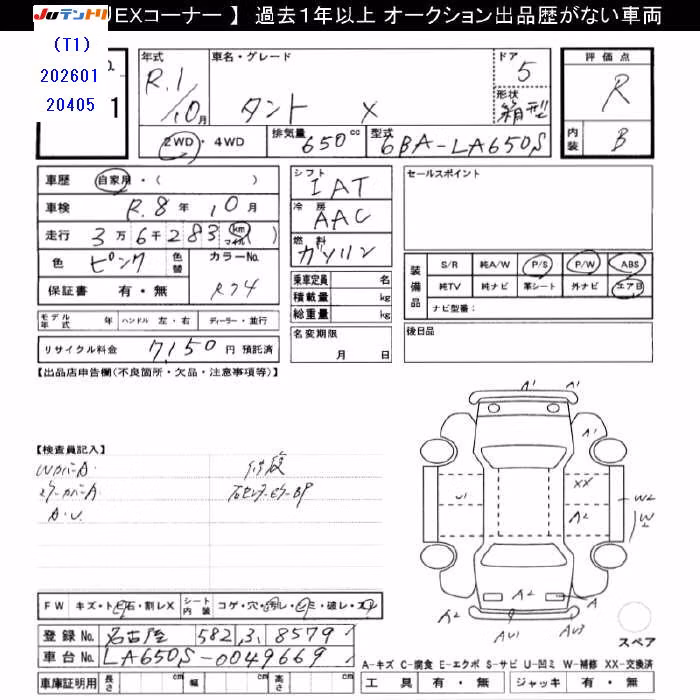 JUテントリ
EXコーナー 】 過去1年以上 オークション出品歴がない車両
(T1)
202601
20405
1
年式
R.1/10月
車名・グレード
タント X
ドア
5
形状
箱型
評価点
R
内装
B
2WD・4WD
排気量 650 cc
型式 6BA-LA650S
車歴 自家用・( )
車検 R.8年10月
走行 3万6千283 km マイル )
色 ピンク
色替
カラーNo.
R74
保証書 有・無
シフト
IAT
冷房
AAC
燃料
ガソリン
乗車定員 名
積載量 kg
総重量 kg
セールスポイント
装備品
S/R 純A/W P/S P/W ABS
純TV 純ナビ 革シート 外ナビ エアB
ナビ型番:
モデル年式 年 ハンドル 左・右 ディーラー・並行
名変期限
月 日
後日品
リサイクル料金 7,150 円 預託済
【出品店申告欄(不良箇所・欠品・注意事項等)】
【検査員記入】
WカバーA.
ミラーカバーA
A.U.
修復
A1
A1
A1
U1
XX
A2
W2
W
A
A2
AU1
AU3
スペア
FW キズ・トビ石・割レX
シート内装 コゲ・穴・汚レ・シミ・破レ・スレ
登録No. 名古屋 582 , 3, 8579
車台No. LA650S-0049669
車庫証明用 長さ cm 幅 cm 高さ cm
A-キズ C-腐食 E-エクボ S-サビ U-凹ミ W-補修 XX-交換済
工具 有・無 ジャッキ 有・無